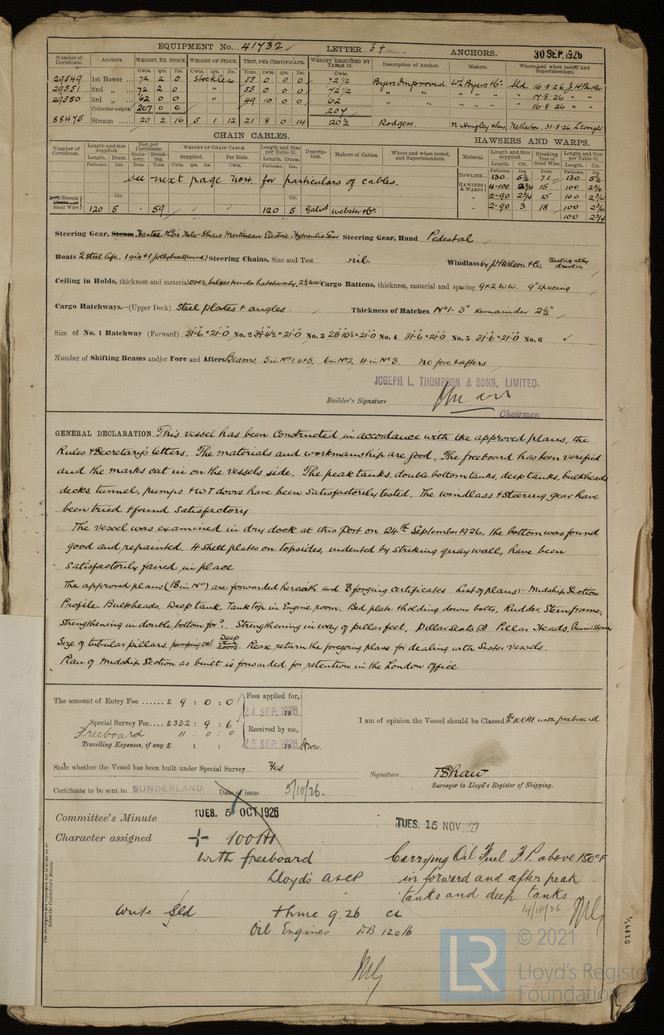 EQUIPMENT No. 41732 LETTER ANCHORS. 30 SEP 1926
Number of Certificate. Anchors. WEIGHT, EX. STOCK. WEIGHT OF STOCK. TEST, PER CERTIFICATE. WEIGHT REQUIRED BY TABLE 31. Description of Anchor. Makers. Where and when tested and Superintendent.
29549 1st Bower 72 2 0 Stockless 55 0 0 0 72½ Byers Improved Wm Byers & Co Sld. 16-8-26 J.H. Butler
29551 2nd " 72 2 0 " 55 0 0 0 72½ " " " 17-8-26 "
29550 3rd " 62 0 0 " 49 10 0 0 62 " " " 16-8-26 "
Collective weight 207 0 0 207
88475 Stream 20 2 16 5 1 12 21 8 0 14 20½ Rodgers. N. Hingley & Sons Netherton. 31-8-26
CHAIN CABLES. HAWSERS AND WARPS.
Number of Certificate. Length and size supplied. Test per Certificate WEIGHT OF CHAIN CABLE. Length and Size per Table 31. Description. Makers of Cables. Where and when tested, and Superintendent. Material. Length and Size supplied. Breaking Test of Steel Wire. Length and Size per Table 31.
See next page No 4 for particulars of cables.
TOWLINE 130 5½ 71 130 5½
HAWSERS & WARPS 4-100 2¾ 15 100 2¾
" 2-90 2¾ 15 100 2¾
" 2-90 3 18 100 2¾
100 2¾
Steel Wire 120 5 59 120 5 Galvd Webster & Co
Steering Gear, Steam Hele-Shaw Martineau Electric Hydraulic Gear Steering Gear, Hand Pedestal
Boats 2 Steel life, 1 gig & 1 jollyboat (wood) Steering Chains, Size and Test nil. Windlass by J.H. Wilson & Co
Ceiling in Holds, thickness and material over bilges & under hatches only, 2½ W.W. Cargo Battens, thickness, material and spacing 9×2 W.W. 9" spacing
Cargo Hatchways.—(Upper Deck) Steel plates & angles. Thickness of Hatches No 1. 3" Remainder 2½"
Size of No. 1 Hatchway (Forward) 31'-6"×21'-0" No. 2 39'-4½"×21'-0" No. 3 28'-10½"×21'-0" No. 4 31'-6"×21'-0" No. 5 31'-6"×21'-0" No. 6
Number of Shifting Beams and/or Fore and Afters Beams 5 in No 1, 4 & 5, 6 in No 2, 4 in No 3. no fore & afters
JOSEPH L. THOMPSON & SONS, LIMITED.
Builder's Signature
Chairman
GENERAL DECLARATION. This vessel has been constructed in accordance with the approved plans, the
Rules & Secretary's letters. The materials and workmanship are good. The freeboard has been verified
and the marks cut in on the vessels side. The peak tanks, double bottom tanks, deep tanks, bulkheads
decks, tunnel, pumps & W.T. doors have been satisfactorily tested. The windlass & steering gear have
been tried & found satisfactory
The vessel was examined in dry dock at this Port on 24th September 1926, the bottom was found
good and repainted. 4 Shell plates on topsides, indented by striking quay wall, have been
satisfactorily faired in place
The approved plans (18 in No) are forwarded herewith and 3 forging certificates List of plans:- Midship Section
Profile, Bulkheads, Deep tank, Tank top in Engine room. Bed plate & holding down bolts, Rudder, Sternframe,
Strengthening in double bottom for'd. Strengthening in way of pillar feet, Pillar Seats (2) Pillar Heads, Cruiser Stern
Size of tubular pillars. Deep tank doors. Please return the foregoing plans for dealing with Sister Vessels.
Plan of Midship Section as built is forwarded for retention in the London Office
The amount of Entry Fee £ 9 : 0 : 0
Special Survey Fee £ 332 : 9 : 6
Freeboard 11 : 0 : 0
Travelling Expenses, if any £ : :
Fees applied for,
24 SEP. 1926
Received by me,
25 SEP. 1926
I am of opinion the Vessel should be Classed ✠100A1 with freeboard
State whether the Vessel has been built under Special Survey Yes
Signature T Shaw
Surveyor to Lloyd's Register of Shipping.
Certificate to be sent to SUNDERLAND. Date of issue 5/10/26.
Committee's Minute TUES. 5 OCT 1926
Character assigned + 100A1
with freeboard
Lloyd's A&CP
TUES. 15 NOV 1927
Carrying Oil Fuel F.P. above 150°F
in forward and after peak
tanks and deep tanks
14/10/26
Write Sld + LMC 9.26 CL
Oil Engines DB 120 lb
LR
© 2021
Lloyd's Register
Foundation